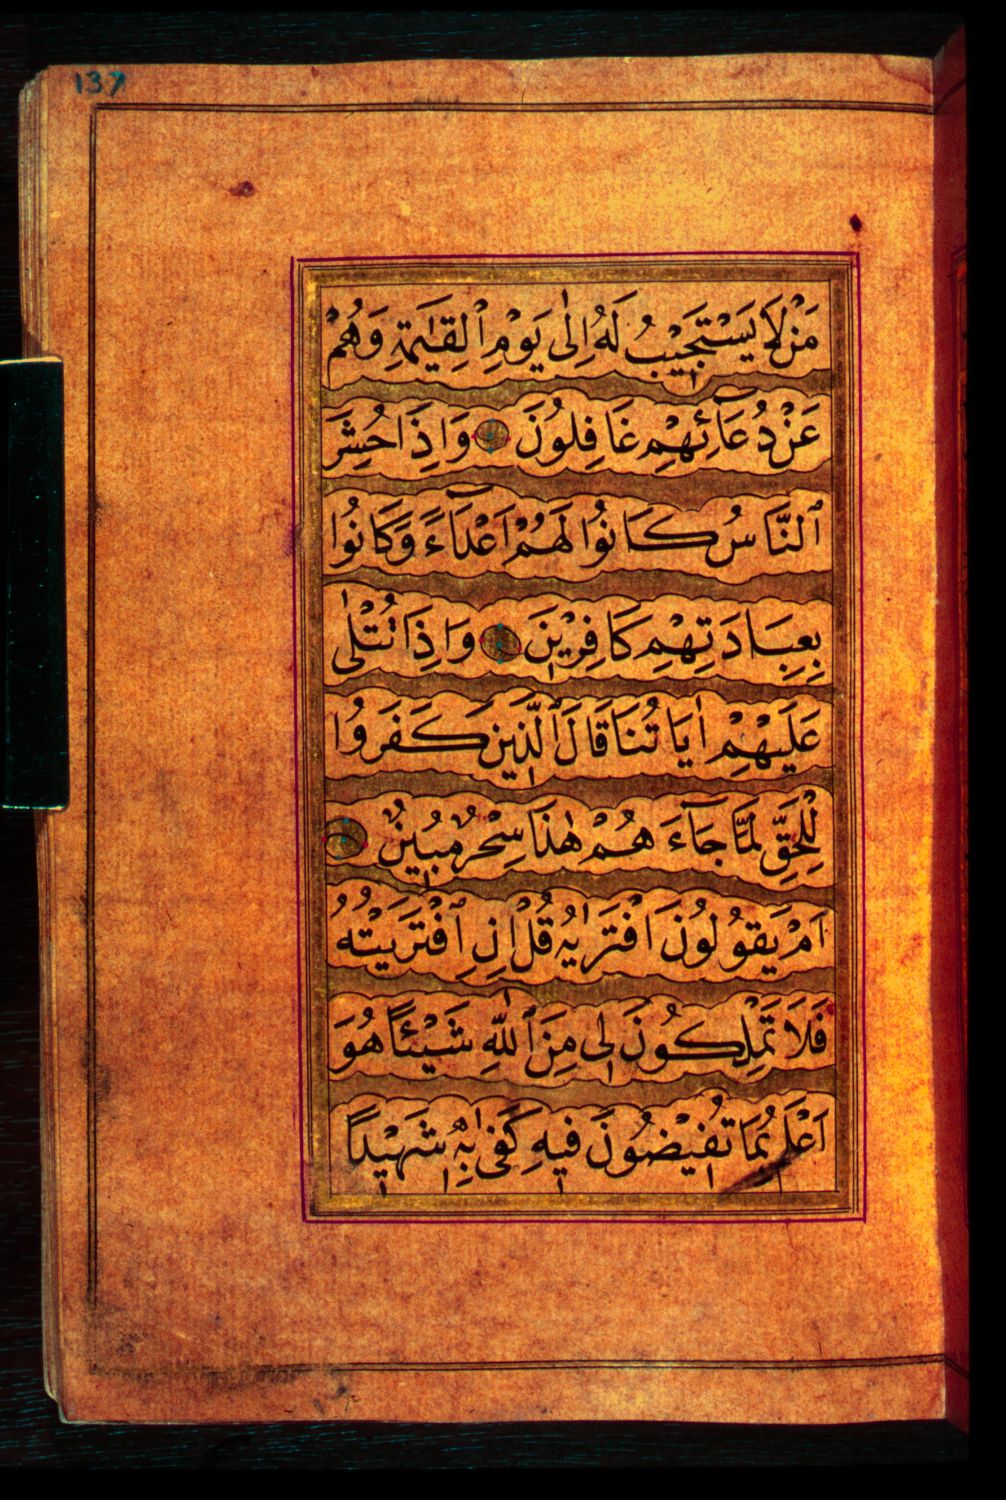 137
مَنْ لَا يَسْتَجِيْبُ لَهُ إِلٰى يَوْمِ ٱلْقِيٰمَةِ وَهُمْ
عَنْ دُعَآئِهِمْ غَافِلُوْنَ وَاِذَا حُشِرَ
ٱلنَّاسُ كَانُوْا لَهُمْ اَعْدَآءً وَّكَانُوْا
بِعِبَادَتِهِمْ كَافِرِيْنَ وَاِذَا تُتْلٰى
عَلَيْهِمْ اٰيَاتُنَا قَالَ ٱلَّذِيْنَ كَفَرُوْا
لِلْحَقِّ لَمَّا جَآءَ هُمْ هٰذَا سِحْرٌ مُّبِيْنٌ
اَمْ يَقُوْلُوْنَ افْتَرٰيهُ قُلْ اِنِ ٱفْتَرَيْتُهُ
فَلَا تَمْلِكُوْنَ لِىْ مِنَ ٱللّٰهِ شَيْئًا هُوَ
اَعْلَمُ بِمَا تُفِيْضُوْنَ فِيْهِ كَفٰى بِهٖ شَهِيْدًا